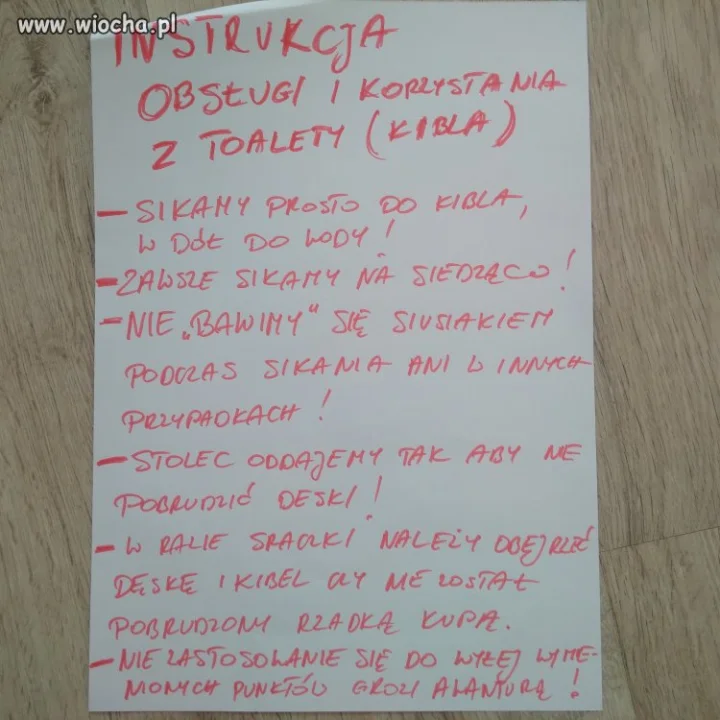 www.wiocha.pl
INSTRUKCJA
OBSŁUGI I KORZYSTANIA
Z TOALETY (KIBLA)
- SIKAMY PROSTO DO KIBLA,
W DÓŁ DO WODY!
- ZAWSZE SIKAMY NA SIEDZĄCO!
- NIE „BAWIMY" SIĘ SIUSIAKIEM
PODCZAS SIKANIA ANI W INNYCH
PRZYPADKACH!
- STOLEC ODDAJEMY TAK ABY NIE
POBRUDZIĆ DESKI!
- W RAZIE SRACZKI NALEŻY OBEJRZEĆ
DĘSKĘ I KIBEL CZY NIE ZOSTAŁ
POBRUDZONY RZADKĄ KUPĄ.
- NIE ZASTOSOWANIE SIĘ DO WYŻEJ WYMIE-
NIONYCH PUNKTÓW GROZI AWANTURĄ!